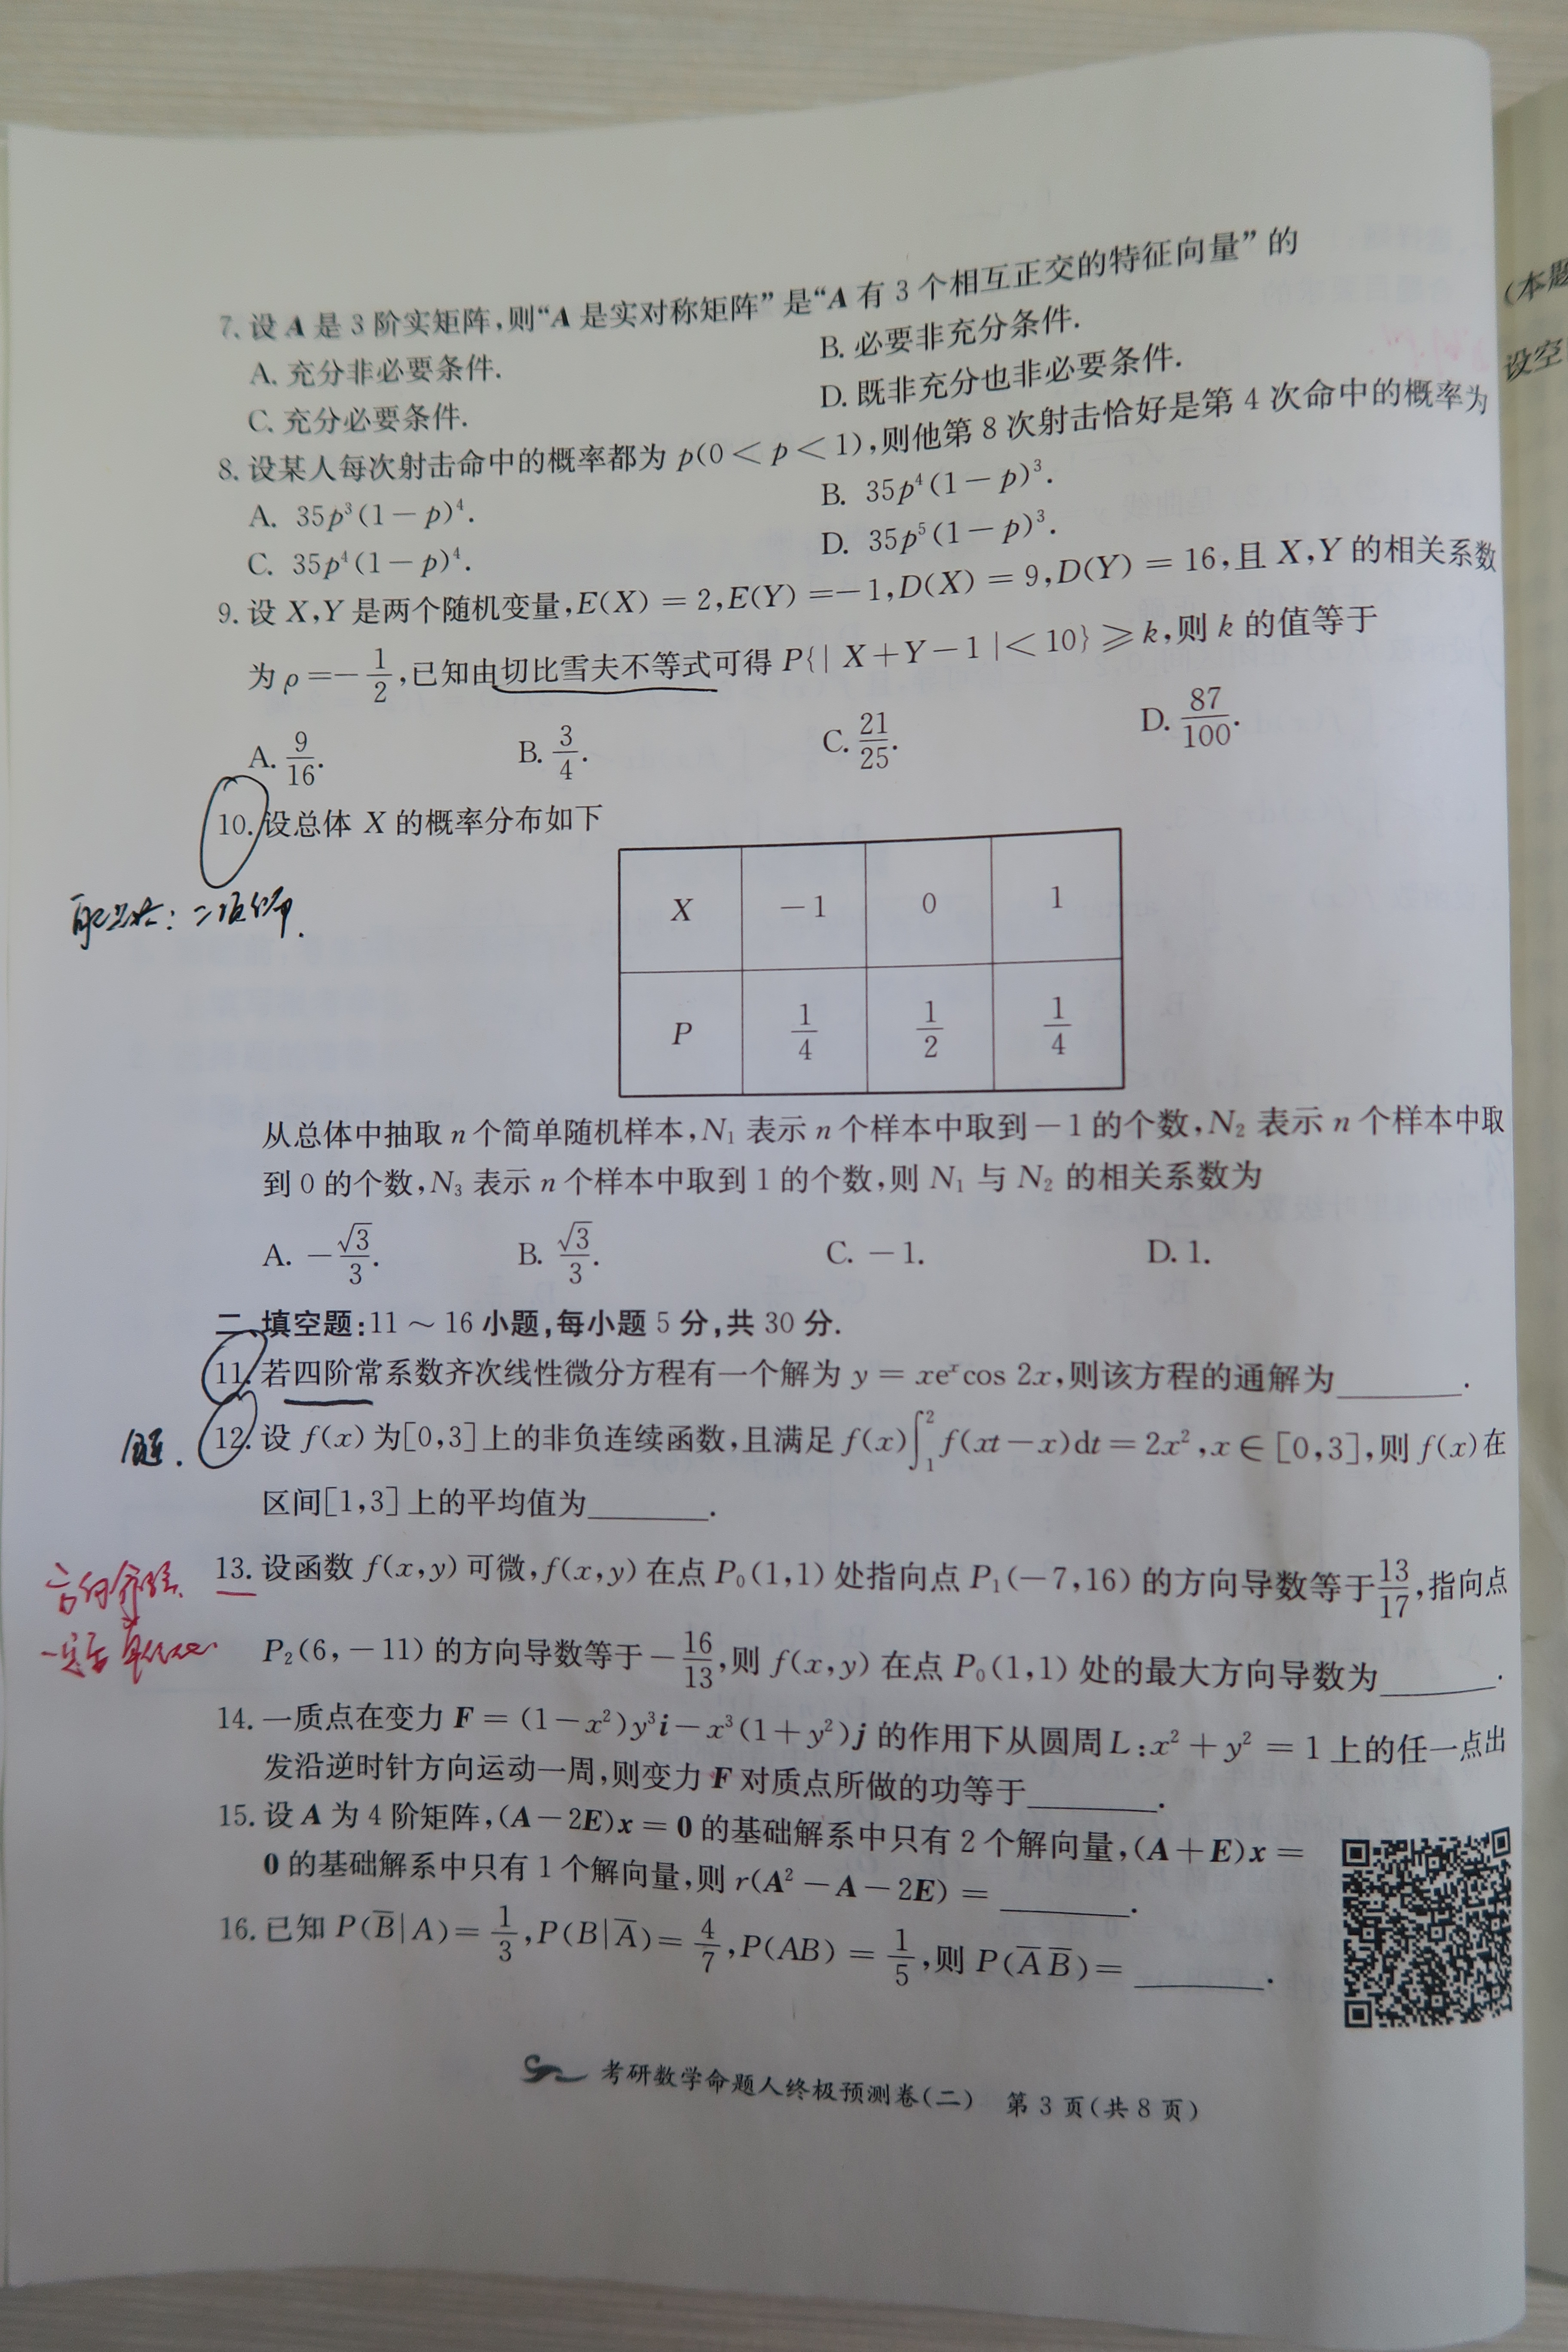 7. 设 A 是 3 阶实矩阵,则“A 是实对称矩阵”是“A 有 3 个相互正交的特征向量”的
A. 充分非必要条件.
B. 必要非充分条件.
C. 充分必要条件.
D. 既非充分也非必要条件.
8. 设某人每次射击命中的概率都为 p(0 < p < 1),则他第 8 次射击恰好是第 4 次命中的概率为
A. 35p³(1−p)⁴.
B. 35p⁴(1−p)³.
C. 35p⁴(1−p)⁴.
D. 35p⁵(1−p)³.
9. 设 X,Y 是两个随机变量,E(X) = 2,E(Y) =−1,D(X) = 9,D(Y) = 16,且 X,Y 的相关系数
为 ρ =−1/2,已知由切比雪夫不等式可得 P{| X+Y−1 |< 10} ⩾ k,则 k 的值等于
A. 9/16.
B. 3/4.
C. 21/25.
D. 87/100.
10. 设总体 X 的概率分布如下
X −1 0 1
P 1/4 1/2 1/4
从总体中抽取 n 个简单随机样本,N₁ 表示 n 个样本中取到 −1 的个数,N₂ 表示 n 个样本中取
到 0 的个数,N₃ 表示 n 个样本中取到 1 的个数,则 N₁ 与 N₂ 的相关系数为
A. −√3/3.
B. √3/3.
C. −1.
D. 1.
二、填空题:11 ~ 16 小题,每小题 5 分,共 30 分.
11. 若四阶常系数齐次线性微分方程有一个解为 y = xeˣcos 2x,则该方程的通解为________.
12. 设 f(x) 为[0,3]上的非负连续函数,且满足 f(x)∫₁² f(xt−x)dt = 2x²,x ∈ [0,3],则 f(x)在
区间[1,3] 上的平均值为________.
13. 设函数 f(x,y) 可微,f(x,y) 在点 P₀(1,1) 处指向点 P₁(−7,16) 的方向导数等于13/17,指向点
P₂(6,−11) 的方向导数等于−16/13,则 f(x,y) 在点 P₀(1,1) 处的最大方向导数为________.
14. 一质点在变力 F = (1−x²)y³i−x³(1+y²)j 的作用下从圆周L:x² + y² = 1 上的任一点出
发沿逆时针方向运动一周,则变力 F 对质点所做的功等于________.
15. 设 A 为 4 阶矩阵,(A−2E)x = 0 的基础解系中只有 2 个解向量,(A+E)x =
0 的基础解系中只有 1 个解向量,则 r(A²−A−2E) = ________.
16. 已知 P(B̅|A)= 1/3,P(B|A̅)= 4/7,P(AB) = 1/5,则 P(A̅ B̅)= ________.
考研数学命题人终极预测卷(二) 第 3 页(共 8 页)
(本题
设空